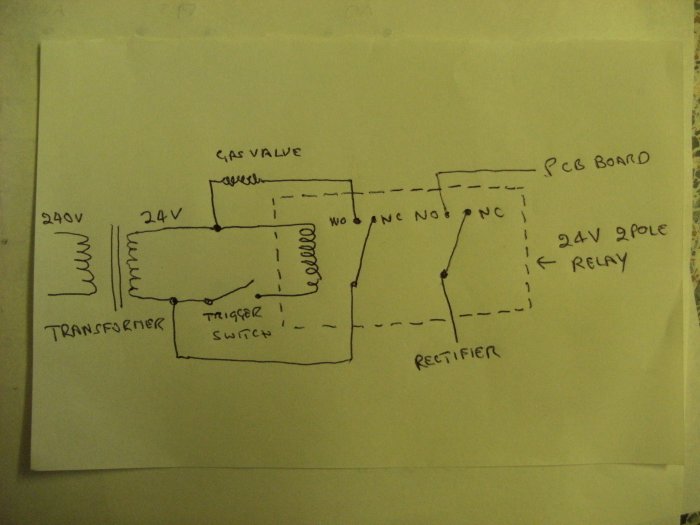 GAS VALVE
PCB BOARD
240V
24V
NO
NC
NO
NC
24V 2POLE
RELAY
TRANSFORMER
TRIGGER
SWITCH
RECTIFIER